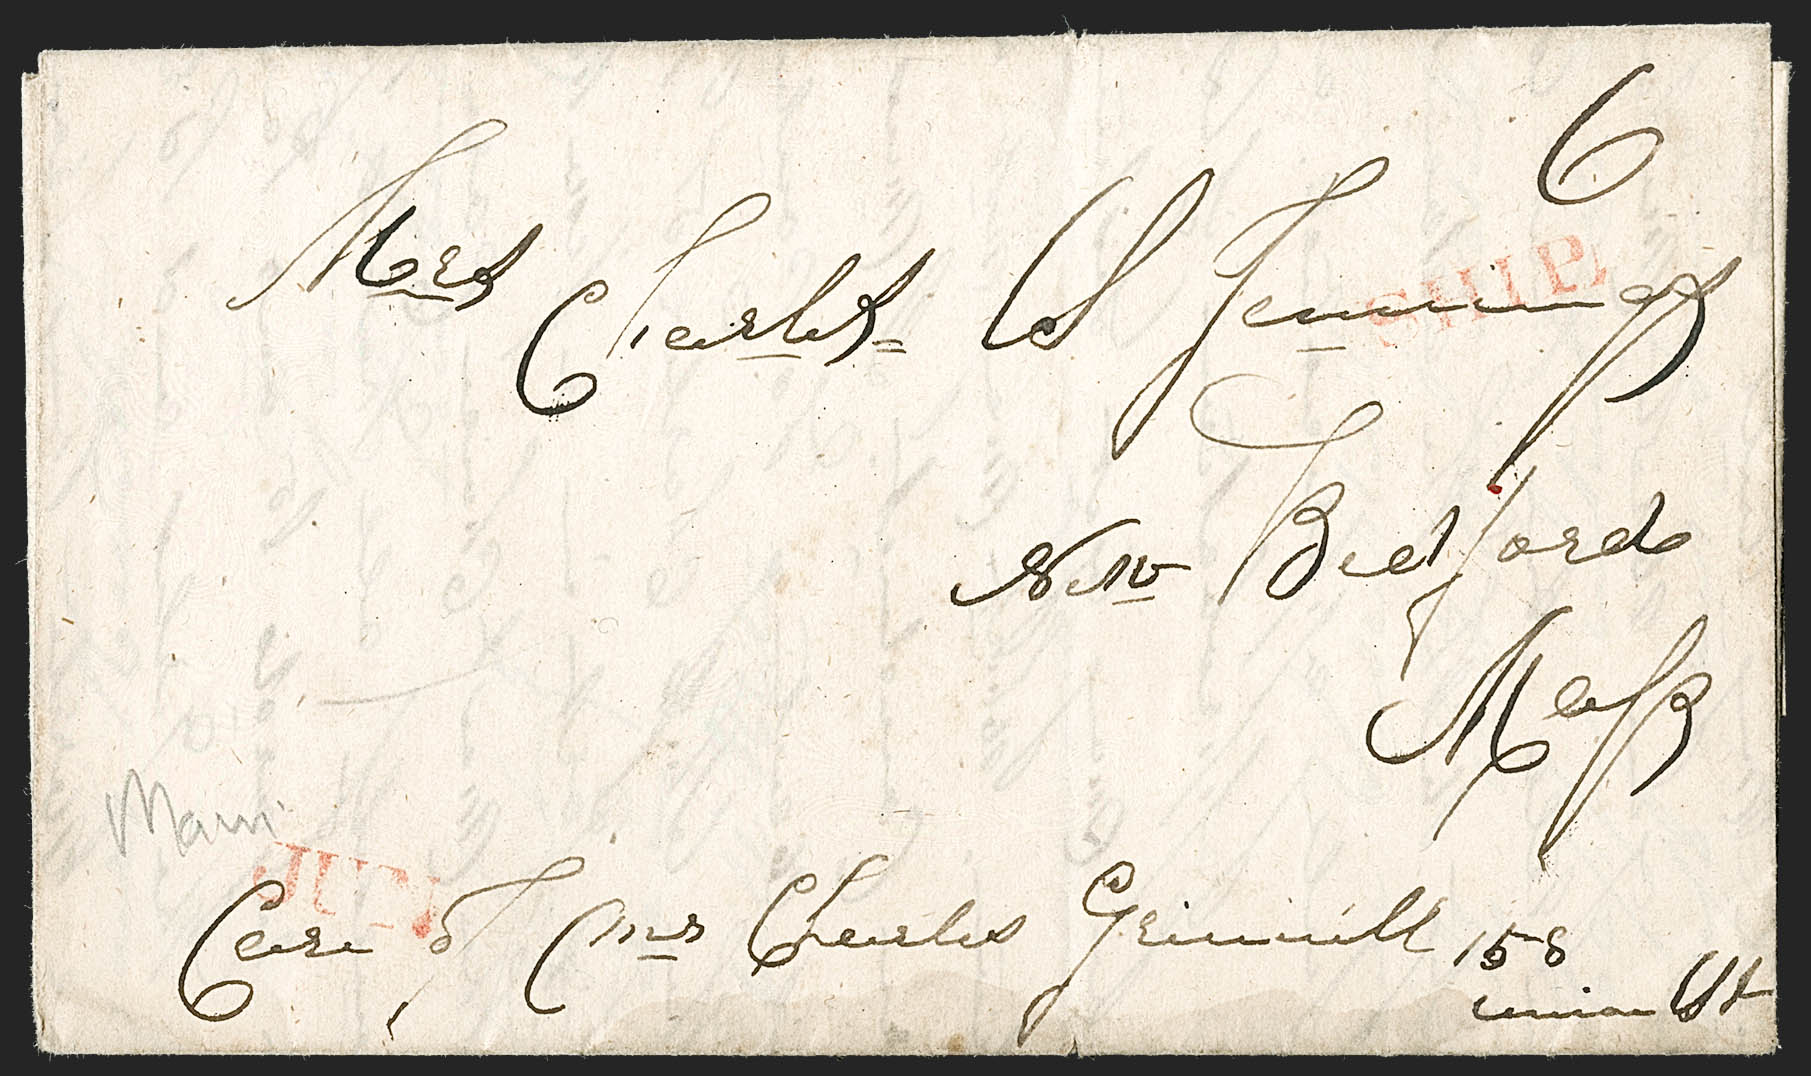 6
SHIP
Mrs
Charles S Jennings
New Bedford
Mass
Maui
JUN
Care of Mr Charles Grinnell 158
union St